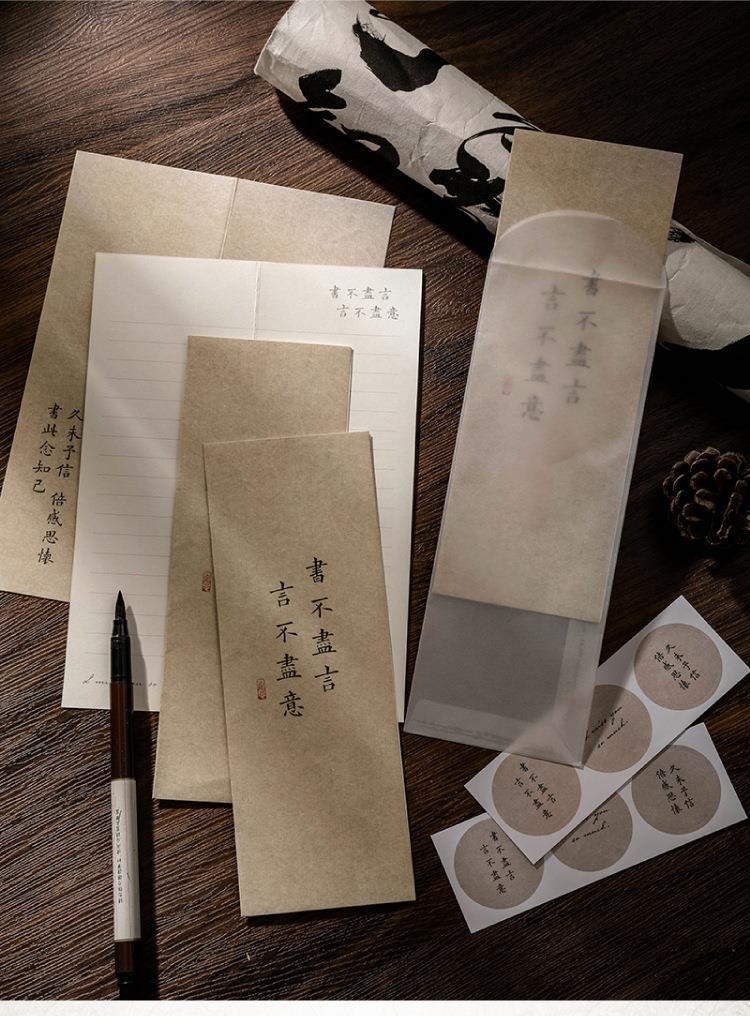 書不盡言
言不盡意
久未予信 倍感思懷
書此念知己
書不盡言
言不盡意
書不盡言
言不盡意
久未予信
倍感思懷
I miss you
so much.
書不盡言
言不盡意
久未予信
倍感思懷
so much.
書不盡言
言不盡意